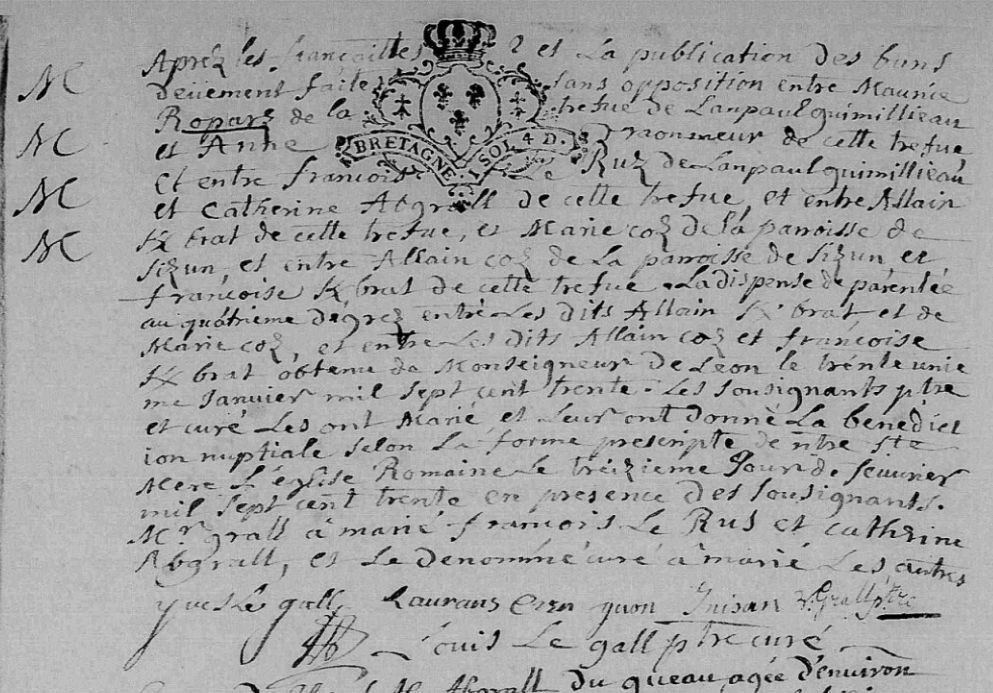 Aprez les françailles et La publication des buns
M devement faite sans opposition entre Maurice
Roparz de la trefue de Lanpaul quimillieau
M et Anne Traonmeur de cette trefue
BRETAGNE 1 SOL 4 D.
Et entre francois Le Ruz de Lanpaul quimillieau
M et Catherine Abgrall de cette trefue, et entre Allain
M brat de cette trefue, et Marie coz de la paroisse de
Sizun, et entre Allain coz de La paroisse de Sizun et
francoise brat de cette trefue. La dispense de parentée
au quatrieme degrez entre Les dits Allain brat et de
Marie coz, et entre Les dits Allain coz et francoise
brat obtenu da Monseigneur De Leon le trénte unie
me Janvier mil sept cent trente. Les sousignants ptre
et curé Les ont Marié, et Leur ont donné La benedict
ion nuptiale selon La forme prescripte de ntre Ste
Mere L'église Romaine Le treizieme Jour de feuvrier
mil sept cent trente en presence Des sousignants.
Mr grall à marié francois Le Rus et catherine
Abgrall, et Le Denommé curé à marié Les autres
yves Le gall, Laurans guon Inisan Grall ptre
Louis Le gall ptre curé
Abgrall Du queau agée d'environ